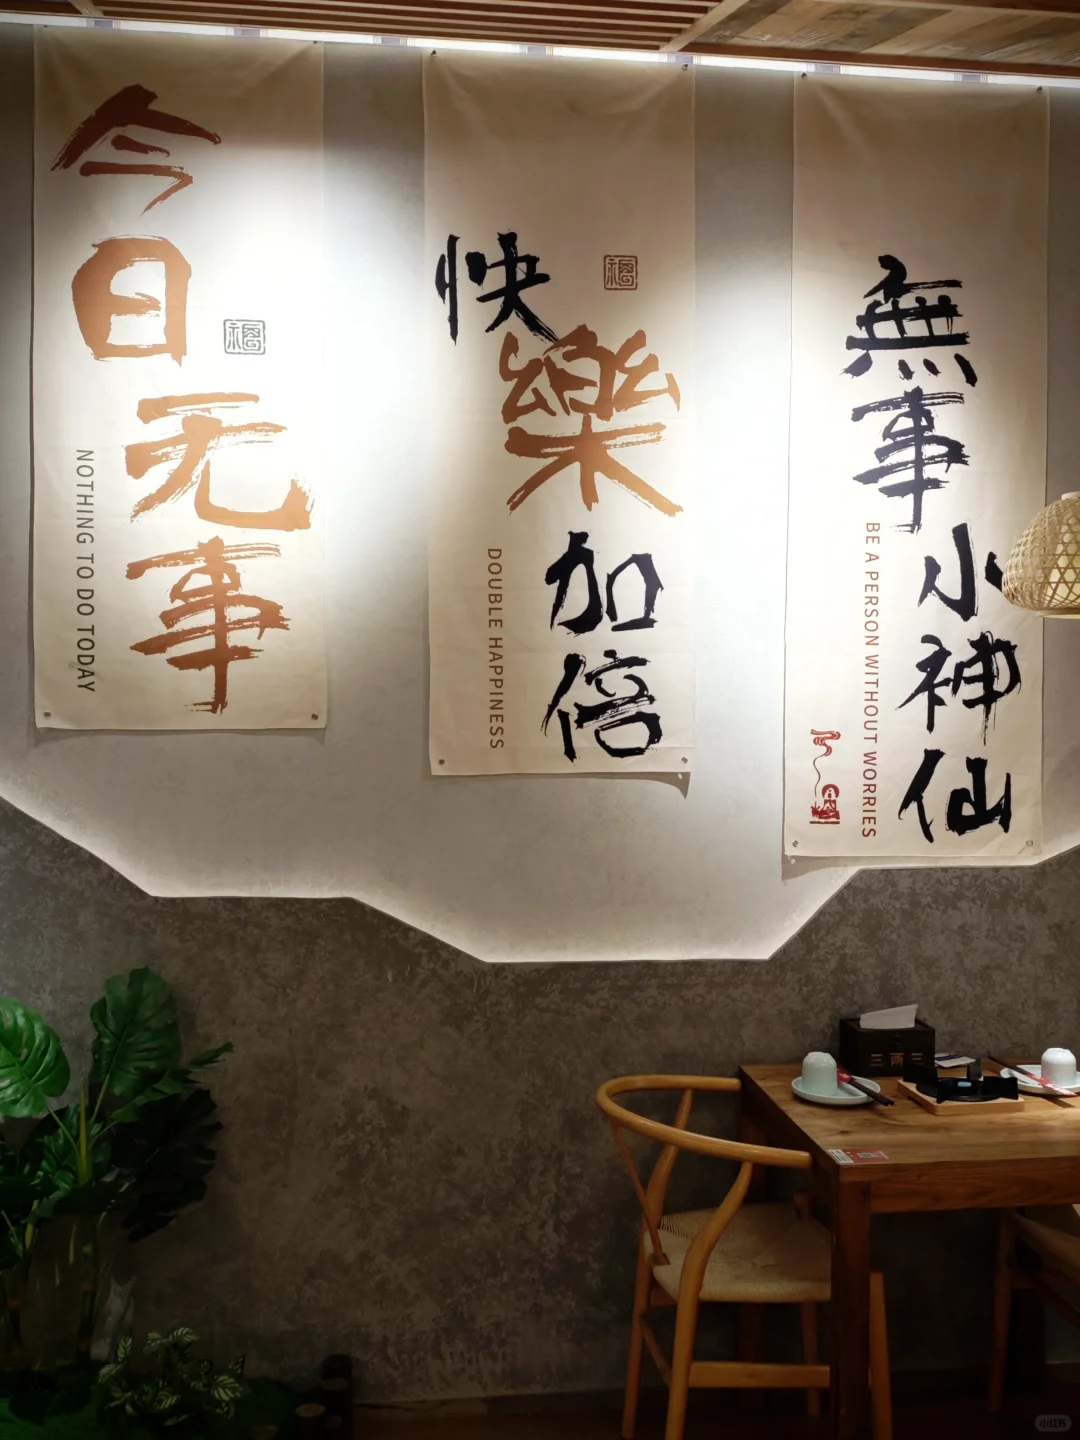 今日无事
福
NOTHING TO DO TODAY
快樂加倍
福
DOUBLE HAPPINESS
無事小神仙
BE A PERSON WITHOUT WORRIES
三两三
小红书